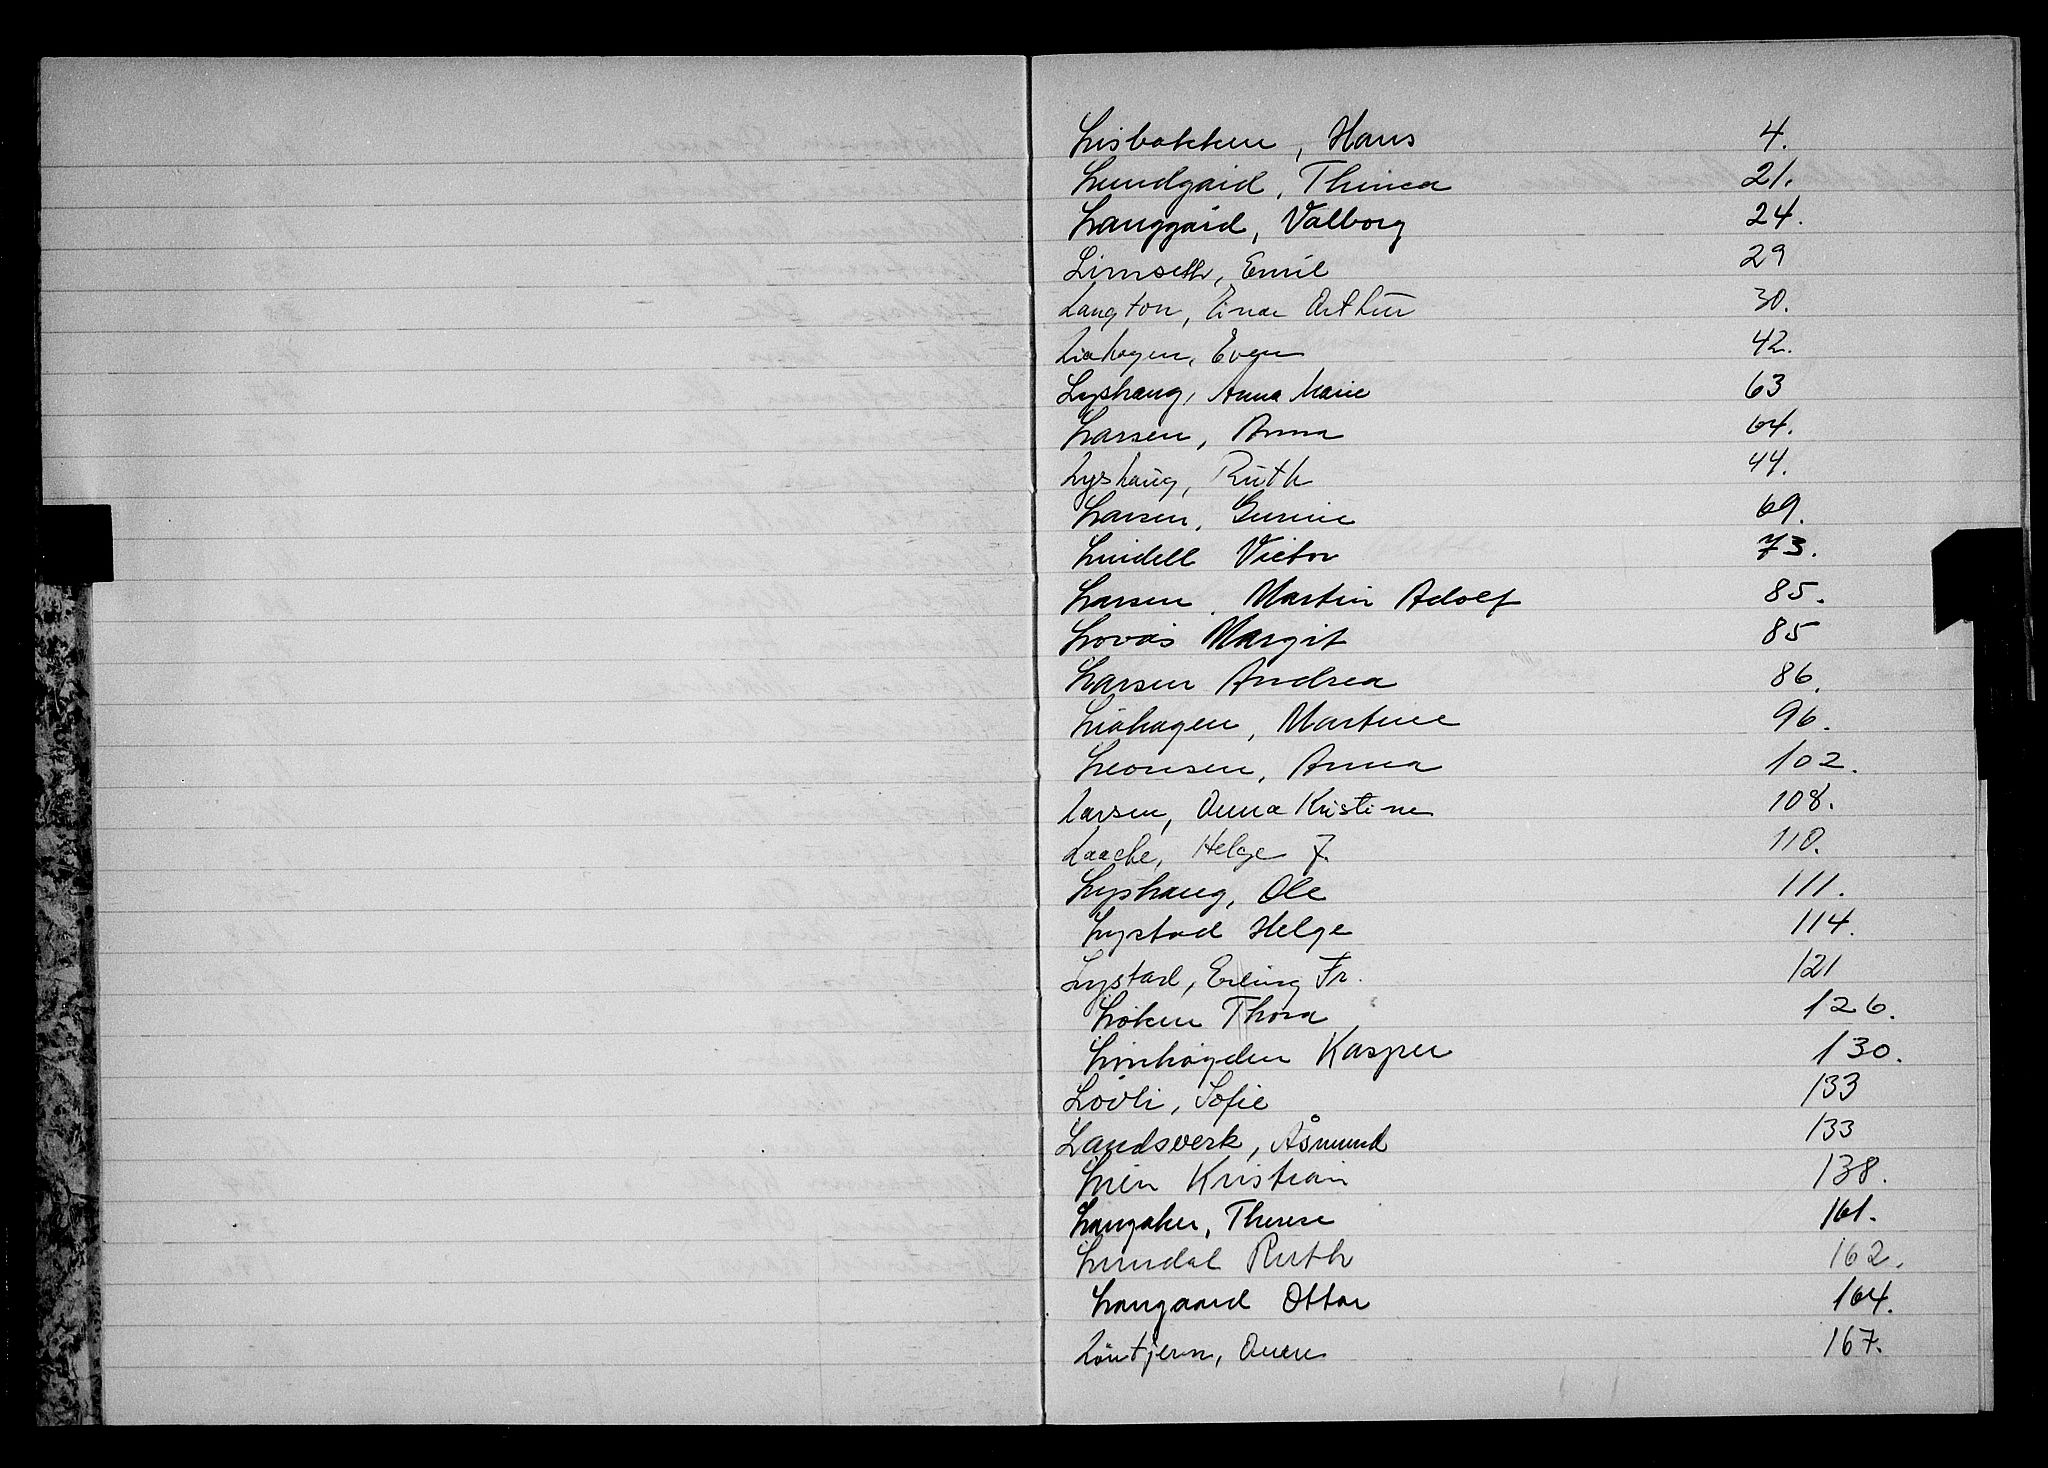 Lisbakken, Hans 4.
Lundgård, Thinea 21.
Langgård, Valborg 24.
Limseth, Emil 29
Langton, Einar Arthur 30.
Liahagen, Even 42.
Lyshaug, Anna Marie 63
Larsen, Anna 64.
Lyshaug, Ruth 44.
Larsen, Gurine 69.
Lindell Victor 73.
Larsen, Martin Adolf 85.
Lovås Margit 85
Larsen Andrea 86.
Liahagen, Martine 96.
Leonsen, Anna 102.
Larsen, Anna Kristine 108.
Laache, Helge J. 110.
Lyshaug, Ole 111.
Lystad Helge 114.
Lystad, Erling Fr. 121
Løken Thora 126.
Linhøgden Kasper 130.
Løvli, Sofie 133
Landsverk, Åsmund 133
Lien Kristian 138.
Langåker, Therese 161.
Lundal Ruth 162.
Langaard Ottar 164.
Løntjern, 167.